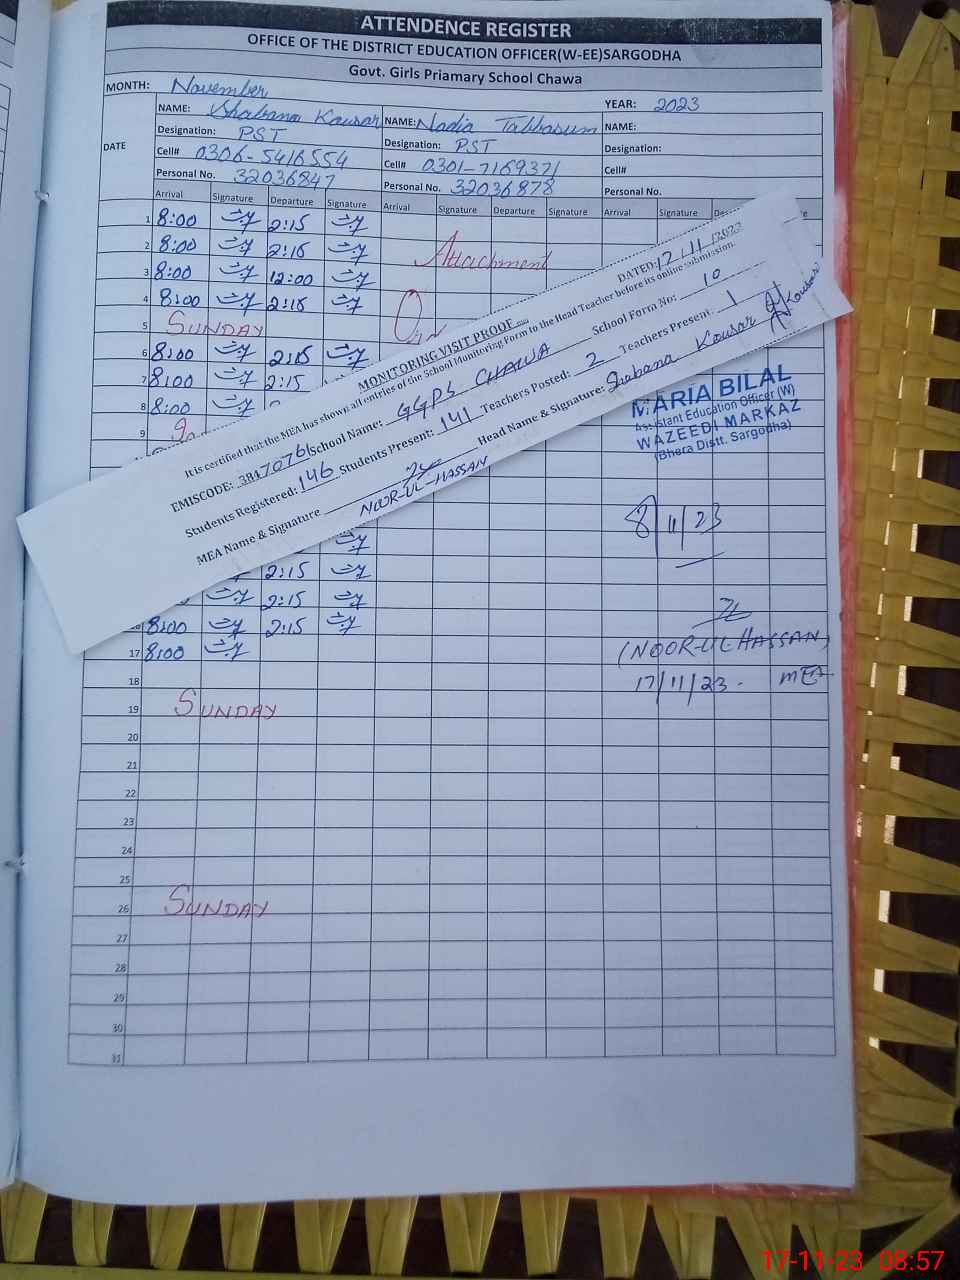 ATTENDENCE REGISTER
OFFICE OF THE DISTRICT EDUCATION OFFICER(W-EE)SARGODHA
Govt. Girls Priamary School Chawa
MONTH: November YEAR: 2023
NAME: Shabana Kousar NAME: Nadia Tabbasum NAME:
Designation: PST Designation: PST Designation:
DATE
Cell# 0306-5416554 Cell# 0301-7169371 Cell#
Personal No. 32036847 Personal No. 32036878 Personal No.
Arrival Signature Departure Signature Arrival Signature Departure Signature Arrival Signature
1 8:00 2:15
2 8:00 2:15
Attachment
3 8:00 12:00
4 8:00 2:15
5 SUNDAY
6 8:00 2:15
7 8:00 2:15
8 8:00
9
MONITORING VISIT PROOF DATED: 17/11/2023
It is certified that the MEA has shown all entries of the School Monitoring Form to the Head Teacher before its online submission.
EMISCODE: 38470761 School Name: GGPS CHAWA School Form No: 10
Students Registered: 146 Students Present: 141 Teachers Posted: 2 Teachers Present: 1
MEA Name & Signature NOOR-UL-HASSAN Head Name & Signature: Shabana Kousar Kousar
MARIA BILAL
Assistant Education Officer (W)
WAZEEDI MARKAZ
(Bhera Distt. Sargodha)
8/11/23
2:15
2:15
16 8:00 2:15
17 8:00
(NOOR-UL HASSAN)
17/11/23. MEA
18
19 SUNDAY
20
21
22
23
24
25
26 SUNDAY
27
28
29
30
31
17-11-23 08:57